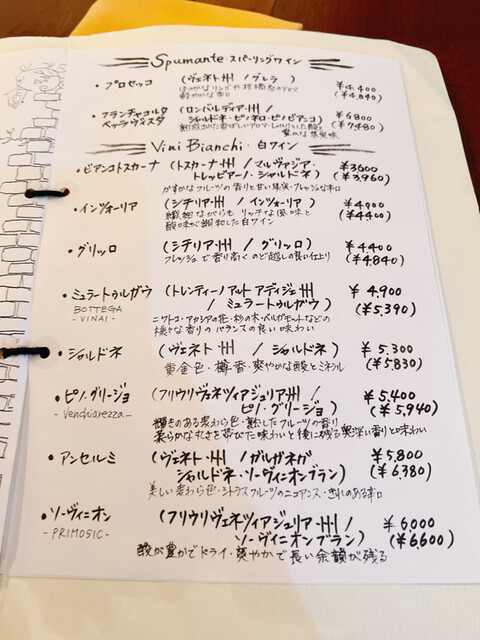 Spumante・スパーリングワイン
・プロセッコ (ヴェネト州 / グレラ) ¥4,400
ほのかなリンゴや柑橘系のアロマ (¥4,840)
軽やかな辛口
・フランチャコルタ (ロンバルディア州 / ¥6800
ベッラヴィスタ シャルドネ・ピノネロ・ピノビアンコ) (¥7,480)
Vini Bianchi・白ワイン
・ビアンコトスカーナ (トスカーナ州 / マルヴァジア・ ¥3,600
トレッビアーノ・シャルドネ) (¥3,960)
かすかなフルーツの香りと甘い果実・フレッシュな辛口
・インツォーリア (シチリア州 / インツォーリア) ¥4000
繊細ながらも リッチな風味と (¥4400)
酸味が調和した白ワイン
・グリッロ (シチリア州 / グリッロ) ¥4400
フレッシュで香り高く のど越しの良い仕上り (¥4,840)
・ミュラートゥルガウ (トレンティーノ アルト アディジェ州 ¥4,900
BOTTEGA / ミュラートゥルガウ) (¥5,390)
-VINAI- ニワトコ・アカシアの花・杉の木・ベルガモットなどの
様々な香りのバランスの良い味わい
・シャルドネ (ヴェネト州 / シャルドネ) ¥5,300
黄金色・樽香・爽やかな酸とミネラル (¥5,830)
・ピノ・グリージョ (フリウリヴェネツィアジュリア州 / ¥5,400
-Venchiarezza- ピノ・グリージョ) (¥5,940)
輝きのある麦わら色・熟したフルーツの香り
柔らかな丸さを帯びた味わいと後に残る奥深い香りと味わい
・アンセルミ (ヴェネト州 / ガルガネガ ¥5,800
シャルドネ・ソーヴィニオンブラン) (¥6,380)
美しい麦わら色・シトラスフルーツのニュアンス・きれのある辛口
・ソーヴィニオン (フリウリヴェネツィアジュリア州 / ¥6,000
-PRIMOSIC- ソーヴィニオンブラン) (¥6,600)
酸が豊かでドライ・爽やかで長い余韻が残る